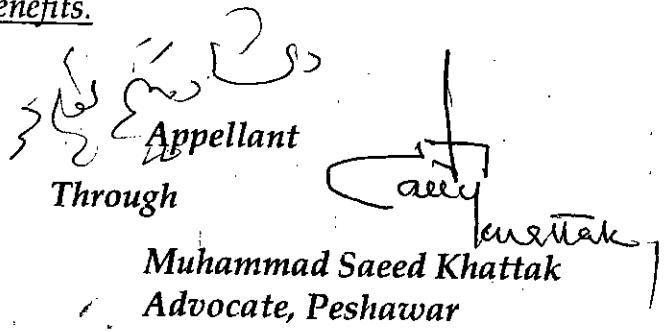 benefits.
Appellant
Through
Khattak
Muhammad Saeed Khattak
Advocate, Peshawar